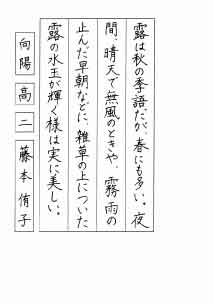 露は秋の季語だが、春にも多い。夜
間、晴天で無風のときや、霧雨の
止んだ早朝などに、雑草の上についた
露の水玉が輝く様は実に美しい。
向陽 高二 藤本侑子